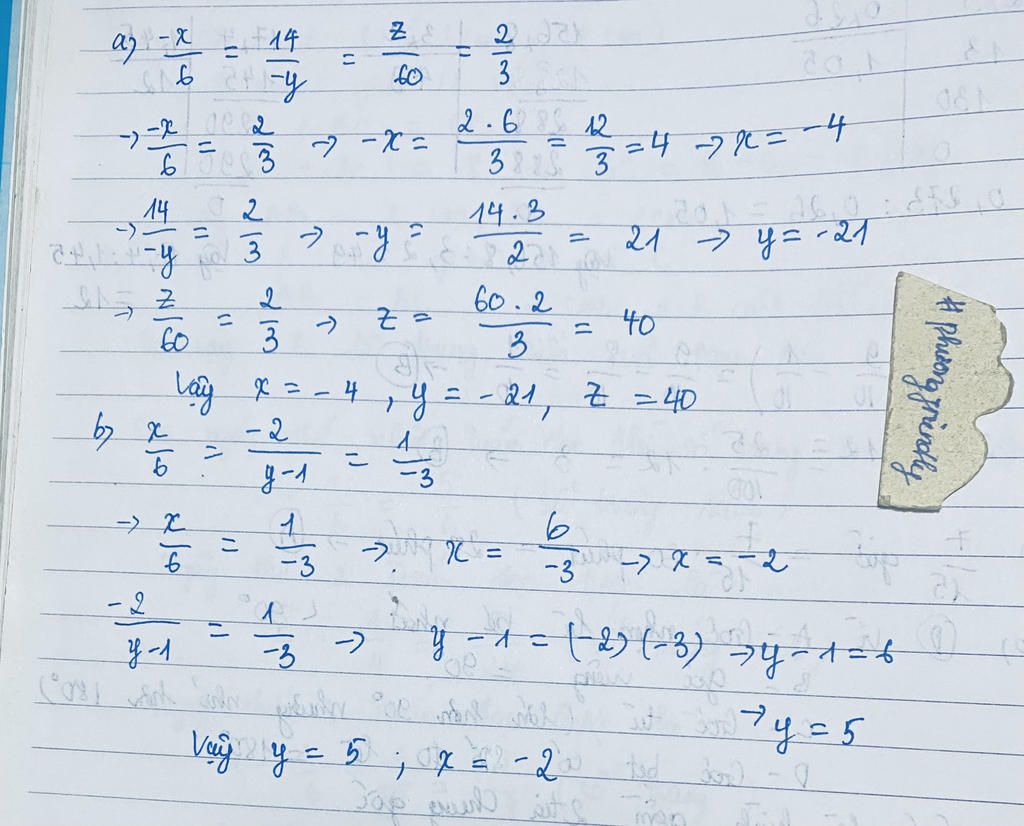 a) -x/6 = 14/-y = z/60 = 2/3
→ -x/6 = 2/3 → -x = 2.6/3 = 12/3 = 4 → x = -4
→ 14/-y = 2/3 → -y = 14.3/2 = 21 → y = -21
→ z/60 = 2/3 → z = 60.2/3 = 40
Vậy x = -4, y = -21, z = 40
b) x/6 = -2/y-1 = 1/-3
→ x/6 = 1/-3 → x = 6/-3 → x = -2
-2/y-1 = 1/-3 → y - 1 = (-2)(-3) → y - 1 = 6
→ y = 5
Vậy y = 5 ; x = -2
# phuongfriendly